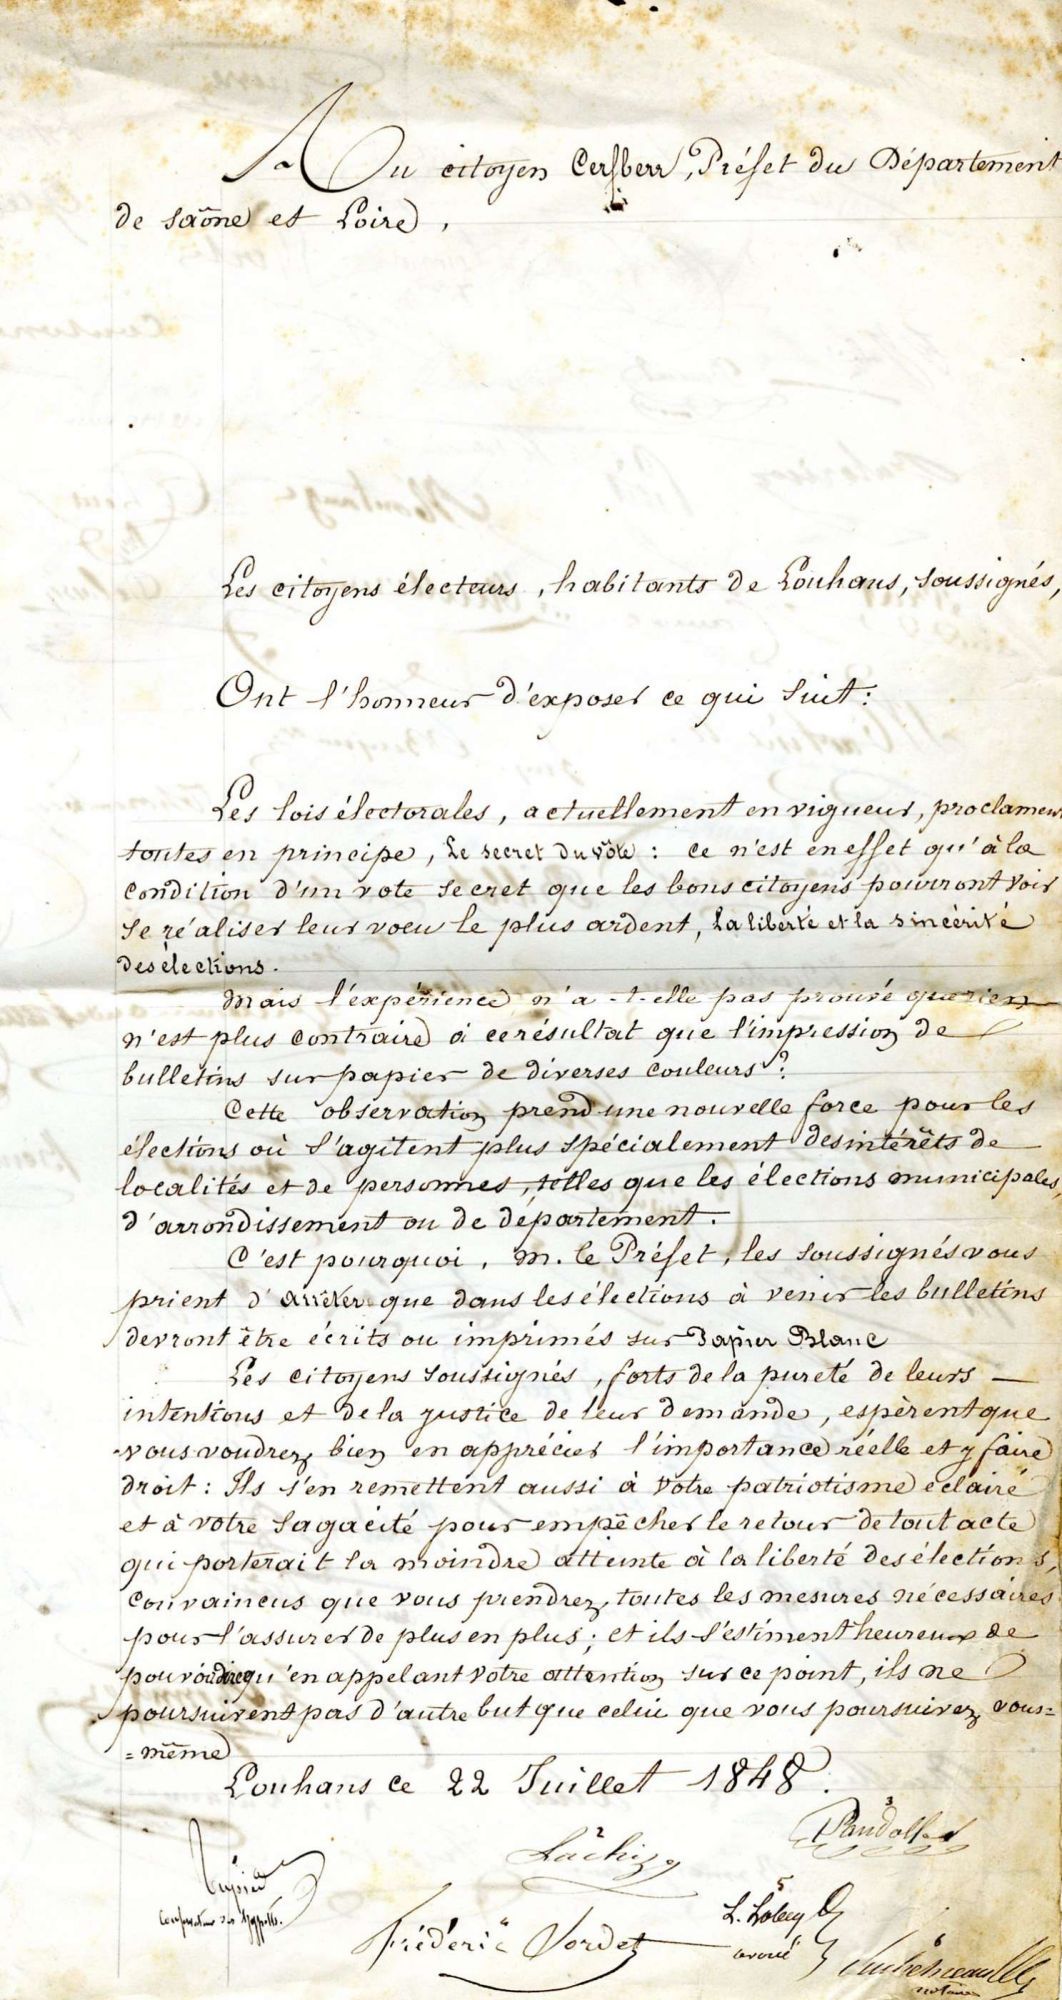 Au citoyen Cerfberr, Préfet du Département
de Saône et Loire,
Les citoyens électeurs, habitants de Louhans, soussignés,
Ont l'honneur d'exposer ce qui suit :
Les lois électorales, actuellement en vigueur, proclament
toutes en principe, Le secret du vôte : ce n'est en effet qu'à la
condition d'un vote secret que les bons citoyens pourront voir
se réaliser leur voeu le plus ardent, La liberté et la sincérité
des élections.
Mais l'expérience n'a-t-elle pas prouvé que rien
n'est plus contraire à ce résultat que l'impression de
bulletins sur papier de diverses couleurs ?
Cette observation prend une nouvelle force pour les
élections où s'agitent plus spécialement des intérêts de
localités et de personnes, telles que les élections municipales
d'arrondissement ou de département.
C'est pourquoi, M. le Préfet, les soussignés vous
prient d'arrêter que dans les élections à venir les bulletins
devront être écrits ou imprimés sur Papier Blanc
Les citoyens soussignés, forts de la pureté de leurs
intentions et de la justice de leur demande, espèrent que
vous voudrez bien en apprécier l'importance réelle et y faire
droit : Ils s'en remettent aussi à votre patriotisme éclairé
et à votre sagacité pour empêcher le retour de tout acte
qui porterait la moindre atteinte à la liberté des élections,
convaincus que vous prendrez toutes les mesures nécessaires
pour l'assurer de plus en plus ; et ils s'estiment heureux de
pouvoir dire qu'en appelant votre attention sur ce point, ils ne
poursuivent pas d'autre but que celui que vous poursuivez vous=
=même
Louhans ce 22 Juillet 1848.
3
2
5
Frédéric Sordet
avoué
6
notaire